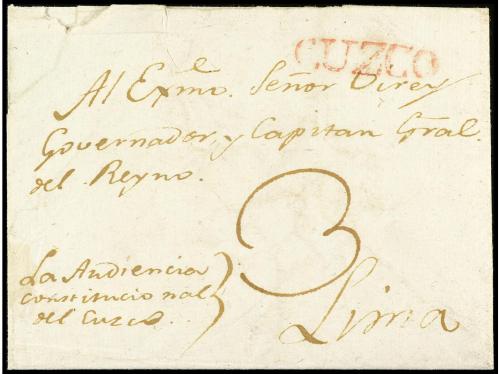 CUZCO
Al Exmo. Señor Virey
Governador, y Capitan Gral.
del Reyno.
3
La Audiencia
constitucional
del Cuzco.
Lima